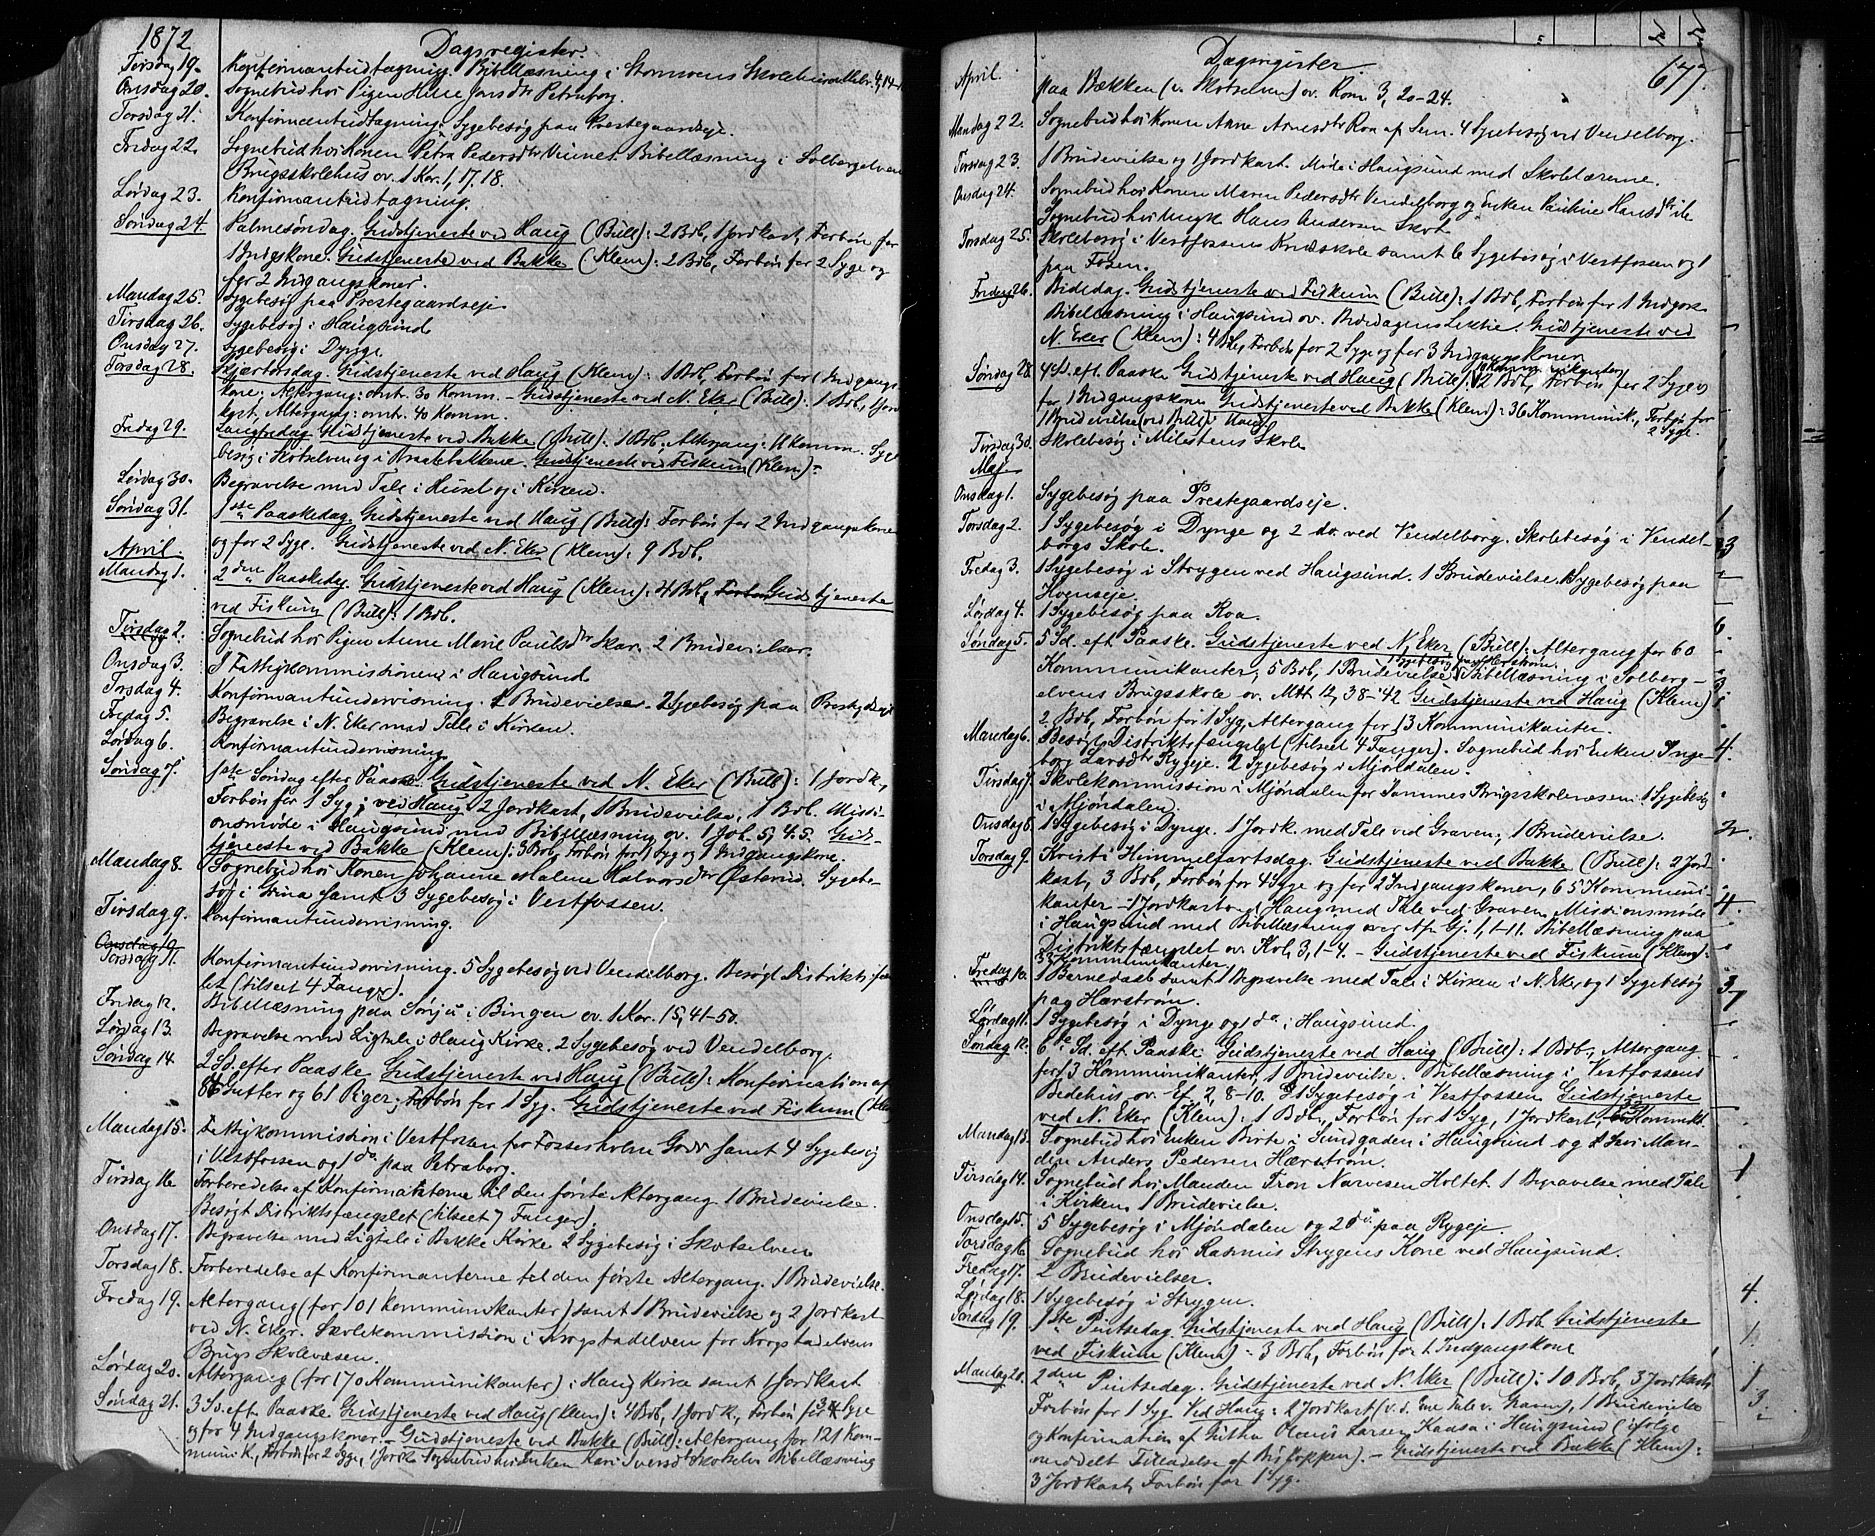 1872
Dagsregister.
Tirsdag 19. Konfirmantudtagning. Bibellæsning i Stormoens Skolehus Hebr. 4, 14-
Onsdag 20. Sognebud hos Pigen Jonsdtr Petraborg.
Torsdag 21. Konfirmantudtagning. Sygebesøg paa Prestegaardseje.
Fredag 22. Sognebud hos Konen Petra Pedersdtr Bibellæsning i Solbergelvens
Brugsskolehus ov. 1 Kor. 1, 17, 18.
Lørdag 23. Konfirmantudtagning.
Søndag 24. Palmesøndag. Gudstjeneste ved Haug (Bull): 2 Bdb, 1 Jordkast, Forbøn for
1 Indgskone. Gudstjeneste ved Bakke (Klem): 2 Bdb, Forbøn for 2 Syge og
for 2 Indgangskoner.
Mandag 25. Sygebesøg paa Prestegaardseje
Tirsdag 26. Sygebesøg i Haugsund
Onsdag 27. Sygebesøg i Dynge
Torsdag 28. Skjærtorsdag. Gudstjeneste ved Haug (Klem): 1 Bdb, Forbøn for 1 Indgangs-
kone; Altergang: omtr. 30 Komm. - Gudstjeneste ved N. Eker (Bull): 1 Bdb, 1 Jord-
kast, Altergang: omtr. 40 Komm.
Fredag 29. Langfredag Gudstjeneste ved Bakke (Bull): 1 Bdb. Altergang: 11 Komm. Syge-
besøg i Skotselven og i Braatebakkene. Gudstjeneste ved Fiskum (Klem) -
Lørdag 30. Begravelse med Tale i Huset og i Kirken.
Søndag 31. 1ste Paaskedag. Gudstjeneste ved Haug (Bull): Forbøn for 2 Indgangskone
og for 2 Syge. Gudstjeneste ved N. Eker (Klem): 9 Bdb.
April.
Mandag 1. 2den Paaskedg. Gudstjeneste ved Haug (Klem): 4 Bdb, Forbøn Gudstjeneste
ved Fiskum (Bull): 1 Bdb.
Tirsdag 2. Sognebud hos Pigen Anne Marie Paulsdtr Skar. 2 Brudevielser.
Onsdag 3. I Fattigkommissionen i Haugsund
Torsdag 4. Konfirmantundervisning. 2 Brudevielser. 2 Sygebesøg paa Prestgdseje
Fredag 5. Begravelse i N. Eker med Tale i Kirken.
Lørdag 6. Konfirmantundervisning
Søndag 7. 1ste Søndag efter Paaske. Gudstjeneste ved N. Eker (Bull): 1 Jordk.,
Forbøn for 1 Syg; ved Haug 2 Jordkast, 1 Brudevielse, 1 Bdb. Missi-
onsmøde i Haugsund med Bibellæsning ov. 1 Joh. 5, 4. 5. Gud-
tjeneste ved Bakke (Klem): 3 Bdb, Forbøn for 1 Syg og 1 Indgangskone.
Mandag 8. Sognebud hos Konen Johanne Malene Halvorsdtr Østerud. Sygebe-
søg i samt 3 Sygebesøg i Vestfossen.
Tirsdag 9. Konfirmantundervisning.
Onsdag 10
Torsdag 11. Konfirmantundervisning. 5 Sygebesøg ved Vendelborg. Besøgt Distriktsfæng-
let (tilseet 4 Fanger).
Fredag 12. Bibellæsning paa Sønju i Bingen ov. 1 Kor. 15, 41-50.
Lørdag 13. Begravelse med Ligtale i Haug Kirke. 2 Sygebesøg ved Vendelborg.
Søndag 14. 2 Sd. efter Paaske Gudstjeneste ved Haug (Bull): Konfirmation af
86 Gutter og 61 Piger; Forbøn for 1 Syg. Gudstjeneste ved Fiskum (Klem)
Mandag 15. Fattigkommission i Vestfossen for Fosserholm Gods samt 4 Sygebesøg
i Vestfossen og 1 do. paa Petraborg.
Tirsdag 16 Forberedelse af Konfirmanterne til den første Altergang. 1 Brudevielse.
Besøgt Distriktsfængslet (tilseet 7 Fanger).
Onsdag 17. Begravelse med Ligtale i Bakke Kirke 2 Sygebesøg i Skotselven
Torsdag 18. Forberedelse af Konfirmanterne til den første Altergang. 1 Brudevielse.
Fredag 19. Altergang (for 101 Kommunikanter) samt 1 Brudevielse og 2 Jordkast
ved N. Eker. Skolekommission i Krogstadelven for Krogstadelvens
Brugs Skolevæsen.
Lørdag 20. Altergang (for 170 Kommunikanter) i Haug Kirke samt 1 Jordkast
Søndag 21. 3 Sd. eft. Paaske. Gudstjeneste ved Haug (Klem): 4 Bdb, 1 Jordk., Forbøn for 34 Syge
og for 4 Indgangskoner. - Gudstjeneste ved Bakke (Bull): Altergang for 121 Kom-
munik, Forbøn for 2 Syge, 1 Jordk. Sognebud hos Enken Kari Iversdtr Skotselv. Bibellæsning
Dagsregister.
677.
April. paa Bækken (v. Skotselven) ov. Rom. 3, 20-24.
Mandag 22. Sognebud hos Konen Anne Arnesdtr Roa af Sem. 4 Sygebesøg ved Vendelborg.
Tirsdag 23. 1 Brudevielse og 1 Jordkast. Møde i Haugsund med Skolelærerne.
Onsdag 24. Sognebud hos Konen Maren Pedersdtr Vendelborg og Enken Pauline Hansdtr
Sognebud hos Hans Andersen Skot
Torsdag 25. Skolebesøg i Vestfossens Kredsskole samt 6 Sygebesøg i Vestfossen og 1
paa Fosen.
Fredag 26. Bededag. Gudstjeneste ved Fiskum (Bull): 1 Bdb, Forbøn for 1 Indgsk.
Bibellæsning i Haugsund ov. Bededagens Lektie. Gudstjeneste ved
N. Eker (Klem): 4 Bdb, Forbøn for 2 Syge og for 3 Indgangskoner
Søndag 28. 4 Sd. eft. Paaske Gudstjeneste ved Haug (Bull): 2 Bdb, Forbøn for 2 Syge og
for 1 Indgangskone Gudstjeneste ved Bakke (Klem): 36 Kommunik., Forbøn for
1 Brudevielse (ved Bull) i Haug. 2 Syge.
Tirsdag 30. Skolebesøg i Milestens Skole
Maj
Onsdag 1. Sygebesøg paa Prestegaardseje.
Torsdag 2. 1 Sygebesøg i Dynge og 2 do. ved Vendelborg. Skolebesøg i Vendel-
borgs Skole.
Fredag 3. 1 Sygebesøg i Strygen ved Haugsund. 1 Brudevielse. 1 Sygebesøg paa
Hvenseje.
Lørdag 4. 1 Sygebesøg paa Roa.
Søndag 5. 5 Sd. eft. Paaske. Gudstjeneste ved N. Eker (Bull): Altergang for 60
1 Sygebesøg paa Hærstrøm.
Kommunikanter, 5 Bdb, 1 Brudevielse. Bibellæsning i Solberg-
elvens Brugsskole ov. Mtt 12, 38-42 Gudstjeneste ved Haug (Klem)
2 Bdb, Forbøn for 1 Syg, Altergang for 13 Kommunikanter.
Mandag 6. Besøgt Distriktsfængslet (tilseet 4 Fanger). Sognebud hos Enken Inge-
borg Larsdtr Rygeje. 2 Sygebesøg i Mjøndalen.
Tirsdag 7. Skolekommission i Mjøndalen for Sammes Brugsskolevæsen. 1 Sygebesøg
i Mjøndalen.
Onsdag 8. 1 Sygebesøg i Dynge. 1 Jordk. med Tale ved Graven; 1 Brudevielse.
Torsdag 9. Kristi Himmelfartsdag. Gudstjeneste ved Bakke (Bull): 2 Jord-
kast, 3 Bdb, Forbøn for 4 Syge og for 2 Indgangskoner, 65 Kommuni-
kanter - 1 Jordkast ved Haug med Tale ved Graven. Missionsmøde
i Haugsund med Bibellæsning over Ap. Gj. 1, 1-11. Bibellæsning paa
Distriktsfængslet ov. Kol. 3, 1-4. - Gudstjeneste ved Fiskum (Klem):
33 Kommunikanter
Fredag 10. 1 Barnedaab samt 1 Begravelse med Tale i Kirken i N. Eker og 1 Sygebesøg
paa Hærstrøm.
Lørdag 11. 1 Sygebesøg i Dynge og 1 do i Haugsund.
Søndag 12. 6te Sd. eft. Paaske. Gudstjeneste ved Haug (Bull): 1 Bdb, Altergang
for 3 Kommunikanter, 1 Brudevielse. Bibellæsning i Vestfossens
Bedehus ov. Ef. 2, 8-10. 1 Sygebesøg i Vestfossen Gudstjeneste
ved N. Eker (Klem): 1 Bdb, Forbøn for 1 Syg, 1 Jordkast, 33 Kommkt.
Mandag 13. Sognebud hos Enken Birte i Sundgaden i Haugsund og hos Man-
den Anders Pedersen Hærstrøm.
Tirsdag 14. Sognebud hos Manden Tron Narvesen Holtet. 1 Begravelse med Tale
i Kirken, 1 Brudevielse.
Onsdag 15. 5 Sygebesøg i Mjøndalen og 2 do paa Rygeje.
Torsdag 16 Sognebud hos Rasmus Strygens Kone ved Haugsund.
Fredag 17. 2 Brudevielser.
Lørdag 18. 1 Sygebesøg i Strygen.
Søndag 19. 1ste Pintsedag. Gudstjeneste ved Haug (Bull): 1 Bdb Gudstjeneste
ved Fiskum (Klem) = 3 Bdb, Forbøn for 1 Indgangskone
Mandag 20. 2den Pintsedag. Gudstjeneste ved N. Eker (Bull): 10 Bdb, 3 Jordkast,
Forbøn for 1 Syg. Ved Haug: 2 Jordkast (v. d. ene Tale v. Graven), 1 Brudevielse
og Konfirmation af Olaus Larsen Kaasa i Haugsund (ifølge
meddelt Tilladelse af Biskoppen). - Gudstjeneste ved Bakke (Klem):
3 Jordkast, Forbøn for 1 Syg.